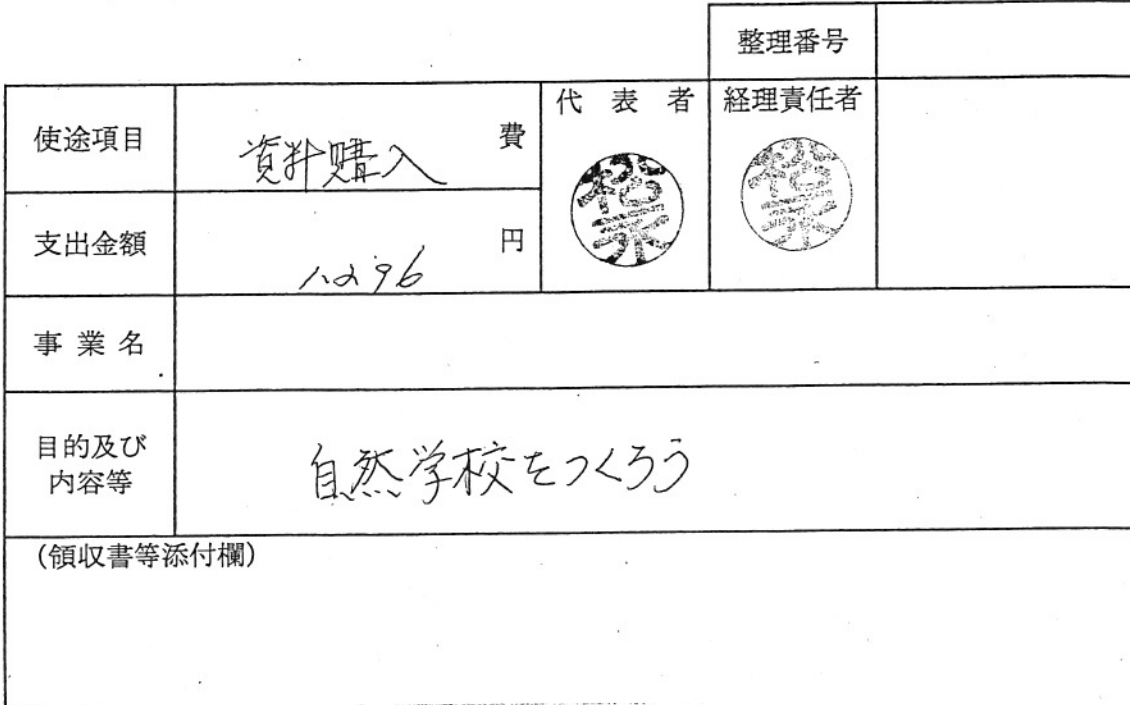 整理番号
使途項目 資料購入 費 代表者 経理責任者
松永 松永
支出金額 1,296 円
事業名
目的及び内容等 自然学校をつくろう
(領収書等添付欄)